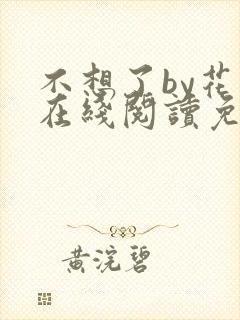 不想了by花
在綫閱讀免
黄浣碧